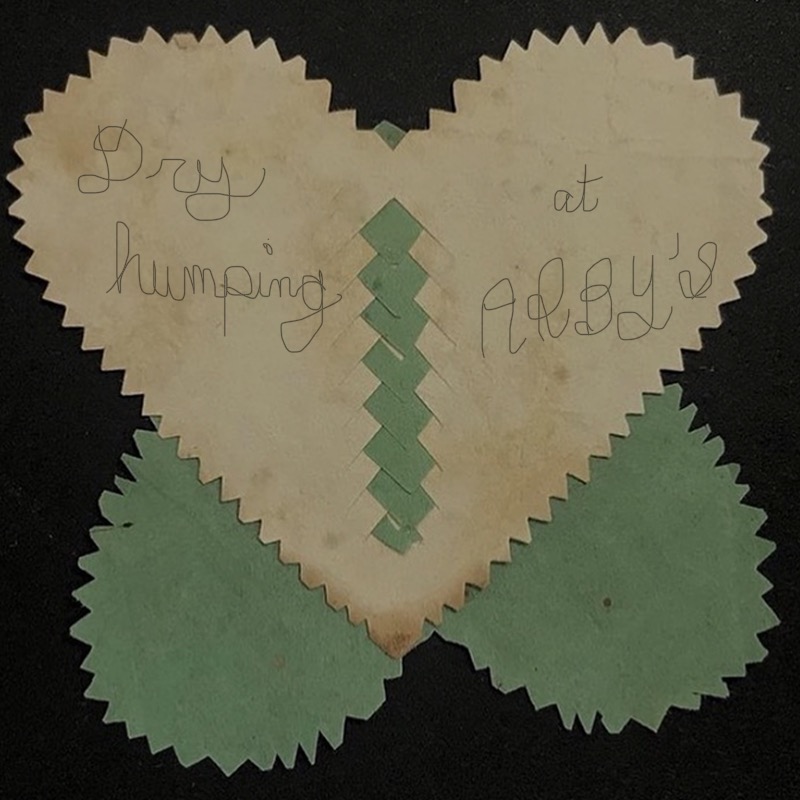 Dry
humping
at
ARBY's